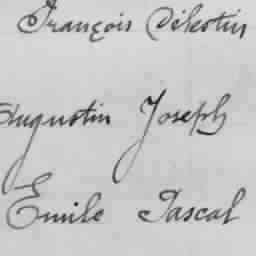 François
Augustin Joseph
Emile Pascal